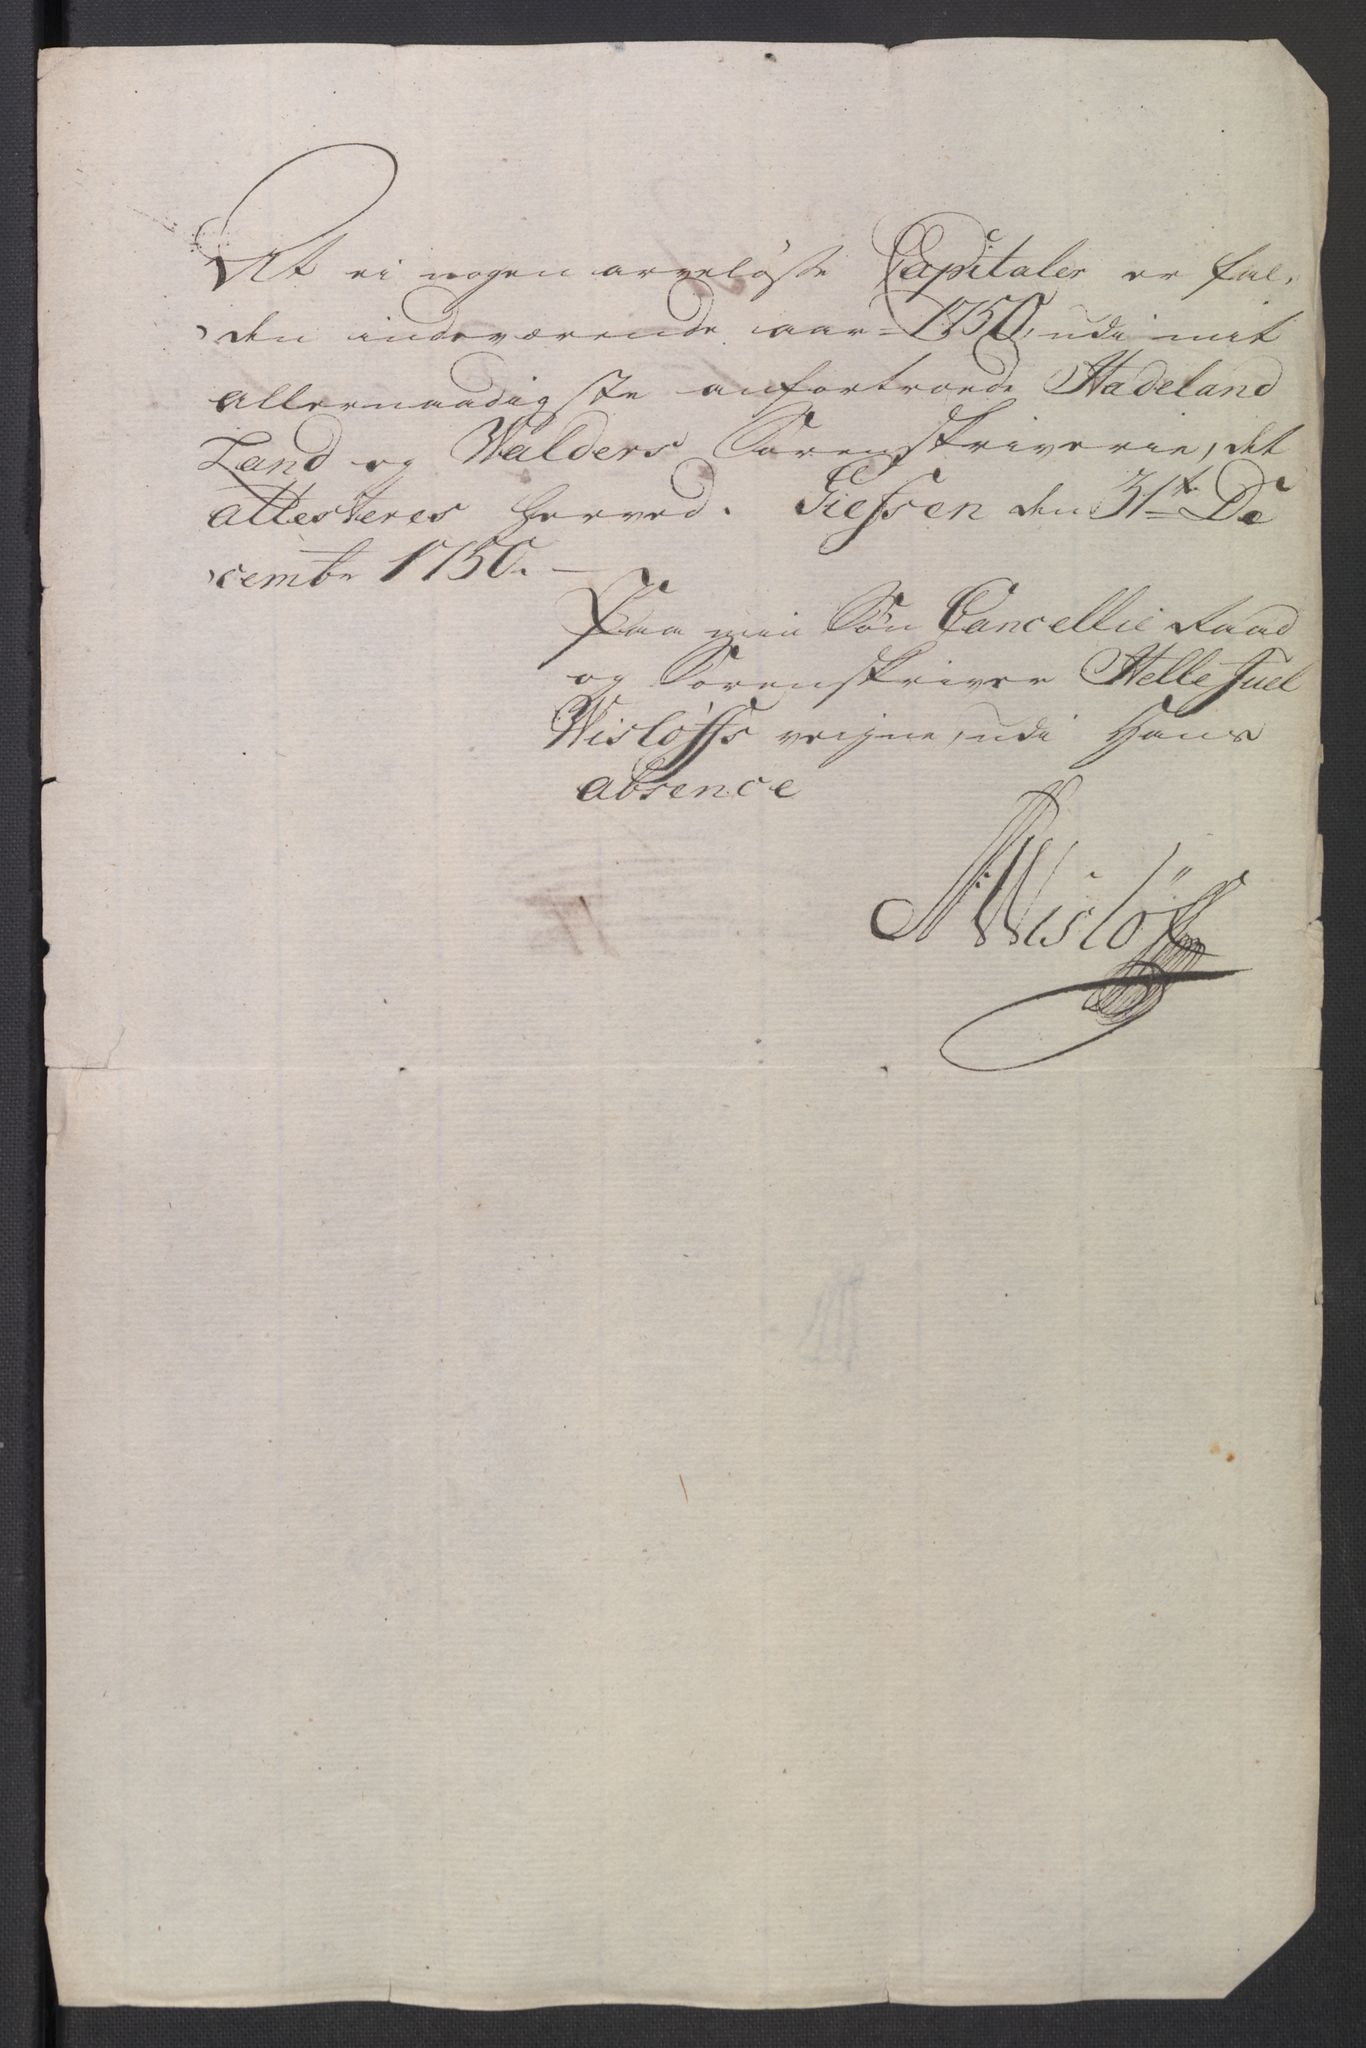 At ei nogen arveløsse Capitaler er fal,
den indeværende aar 1750, udi mit
allernaadigste anfortroede Hadeland
Land og Walders Sorenskriverie, det
attesteres herved. Giefsen den 31te De
cembr 1750. —
Paa min Søn Cancellie Raad
og Sorenskriver Helle Juel
Wisløffs veigne, udi Hans
absence
Wislöff